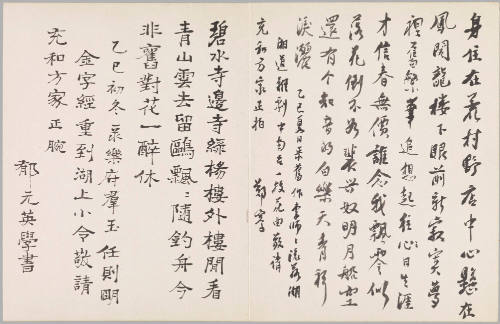 身住在荒村野店中心懸在
鳳閣龍樓下眼前新寂寞夢
裡舊繁華追想起往日生涯
才信春無價誰念我飄零似
落花倒不如裴兴奴明月船空
還有个知音的白樂天青衫
淚灑 乙巳夏日录舊作李師師流落湖
湘道雜劇中南吕一枝花曲敬請
充和方家正拍 鄭騫
碧水寺邊寺綠楊樓外樓閒看
青山雲去留鷗飄〻隨釣舟今
非舊對花一醉休
乙巳初冬录樂府羣玉任則明
金字經重到湖上小令敬請
充和方家正腕
郁元英學書